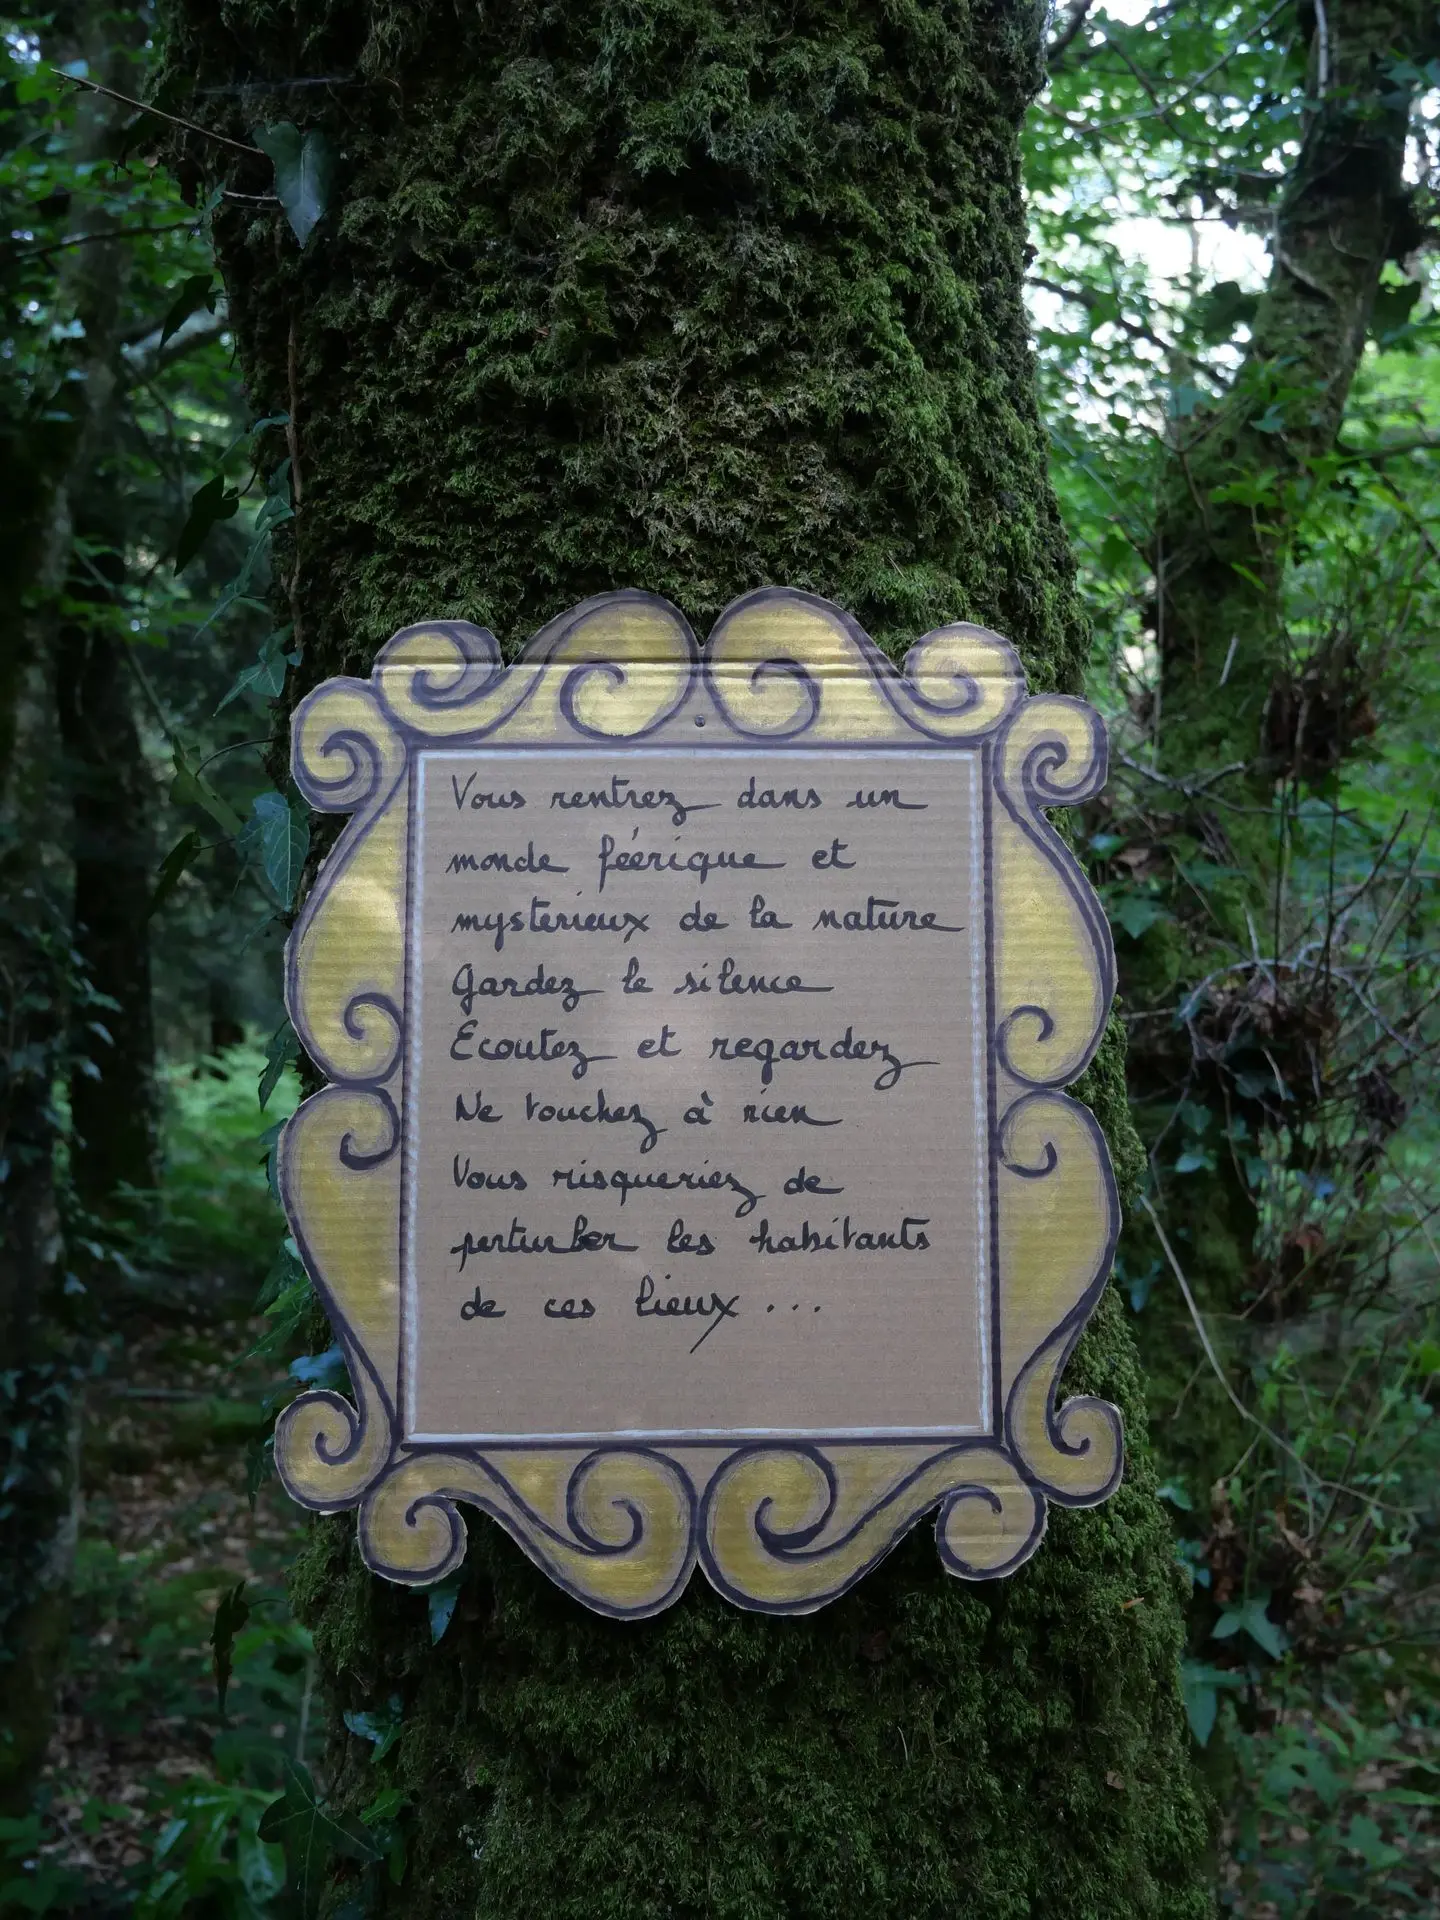 Vous rentrez dans un
monde féerique et
mysterieux de la nature
Gardez le silence
Ecoutez et regardez
Ne touchez à rien
Vous risqueriez de
perturber les habitants
de ces lieux ...